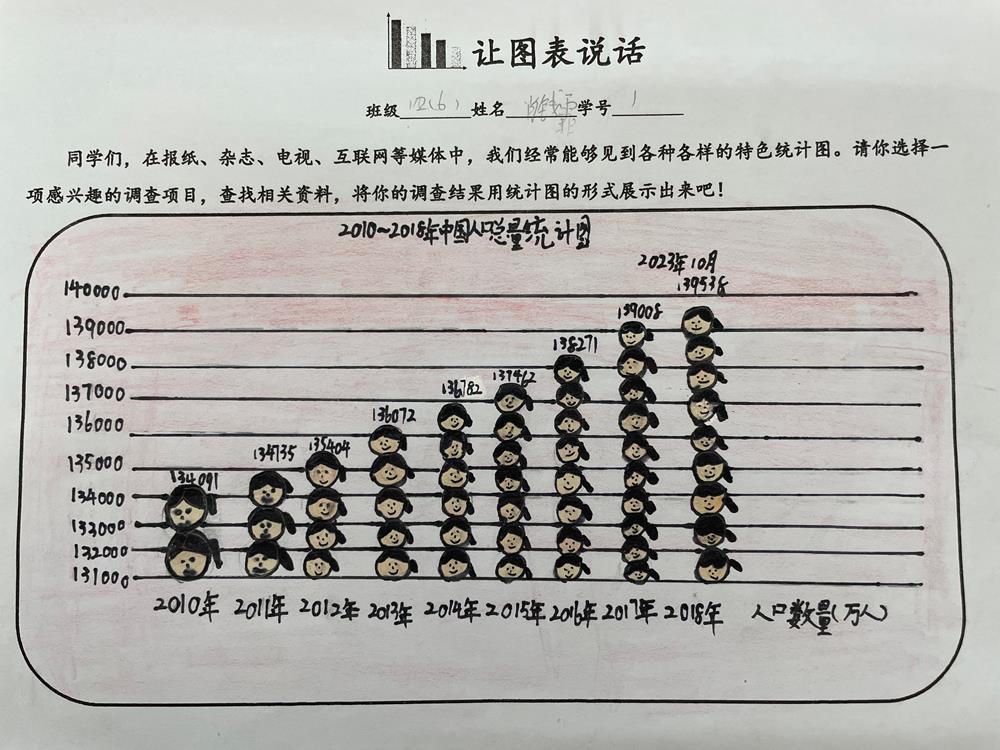 让图表说话
班级 四(6) 姓名 学号 1
同学们，在报纸、杂志、电视、互联网等媒体中，我们经常能够见到各种各样的特色统计图。请你选择一
项感兴趣的调查项目，查找相关资料，将你的调查结果用统计图的形式展示出来吧！
2010~2018年中国人口总量统计图
2023年10月
140000
139538
139008
139000
138271
138000
137462
137000
136782
136072
136000
135404
134735
135000
134091
134000
133000
132000
131000
2010年 2011年 2012年 2013年 2014年 2015年 2016年 2017年 2018年 人口数量(万人)